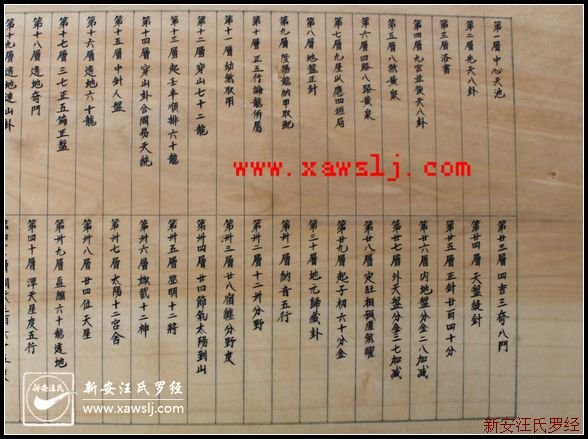 第一層 中心天池
第二層 先天八卦
第三層 洛書
第四層 九宮並使天八卦
第五層 八煞黃泉
第六層 四路八路黃泉
第七層 九星以應四垣局
第八層 地盤正針
第九層 陰陽龍納甲取配
第十層 正五行論龍所屬
第十一層 劫煞取用
第十二層 穿山七十二龍
第十三層 起壬半順排六十龍
第十四層 穿山卦合周易天統
第十五層 中針人盤
第十六層 透地六十龍
第十七層 三七正五偏正盤
第十八層 透地奇門
第十九層 透地連山卦
第廿三層 四吉三奇八門
第廿四層 天盤縫針
第廿五層 正針百四十分
第廿六層 內地盤分金二八加減
第廿七層 外天盤分金三七加減
第廿八層 定駐相孤虛煞曜
第廿九層 起子初六十分金
第三十層 地元歸藏卦
第卅一層 納音五行
第卅二層 十二州分野
第卅三層 廿八宿纏分野度
第卅四層 廿四節氣太陽到山
第卅五層 登明十二將
第卅六層 娵訾十二神
第卅七層 太陽十二宮舍
第卅八層 廿四位天星
第卅九層 盈縮六十龍透地
第四十層 渾天星度五行
www.xawslj.com
新安汪氏罗经
www.xawslj.com
新安汪氏罗经